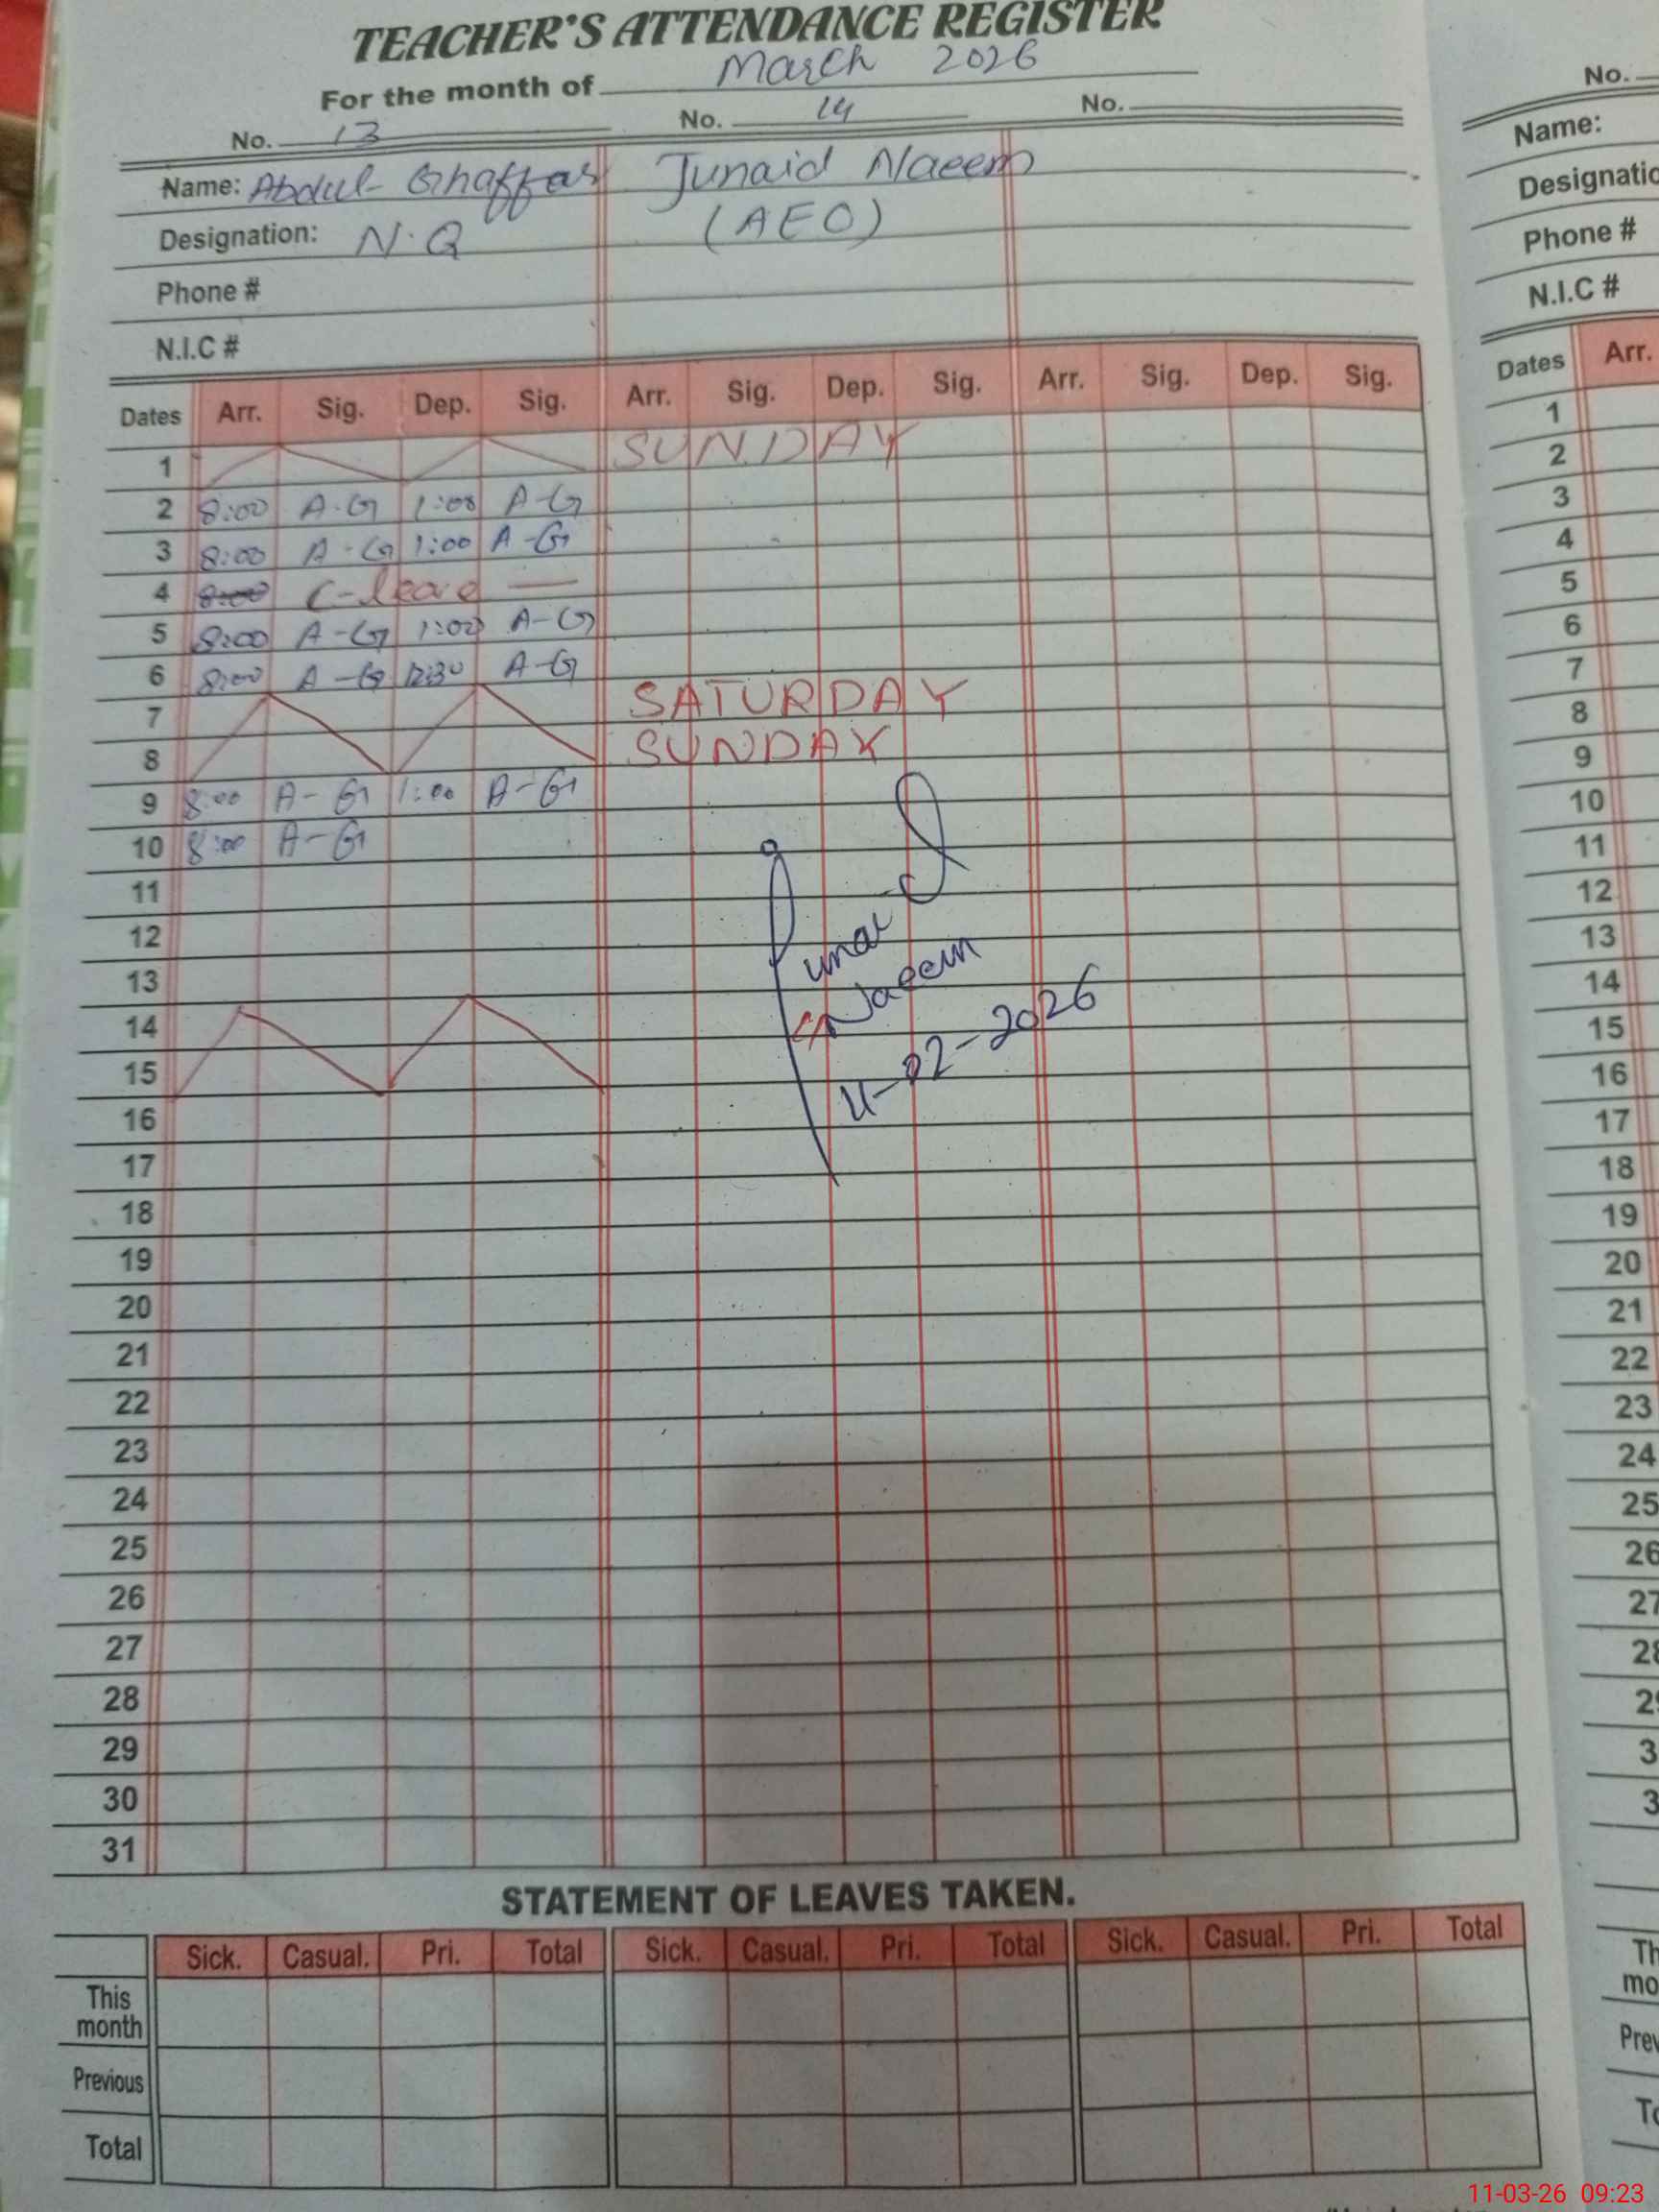 TEACHER'S ATTENDANCE REGISTER
For the month of March 2026
No. 13 No. 14 No.
Name: Abdul Ghaffar Junaid Naeem
Designation: N.Q (AEO)
Phone #
N.I.C #
Dates Arr. Sig. Dep. Sig. Arr. Sig. Dep. Sig. Arr. Sig. Dep. Sig.
1 SUNDAY
2 8:00 A-G 1:00 A-G
3 8:00 A-G 1:00 A-G
4 8:00 C-leave
5 8:00 A-G 1:00 A-G
6 8:00 A-G 12:30 A-G
7 SATURDAY
8 SUNDAY
9 8:00 A-G 1:00 A-G
10 8:00 A-G
11
12
13 Naeem
14
15 11-02-2026
16
17
18
19
20
21
22
23
24
25
26
27
28
29
30
31
STATEMENT OF LEAVES TAKEN.
Sick. Casual. Pri. Total Sick. Casual. Pri. Total Sick. Casual. Pri. Total
This
month
Previous
Total
No.
Name:
Phone #
N.I.C #
Dates Arr.
1
2
3
4
5
6
7
8
9
10
11
12
13
14
15
16
17
18
19
20
21
22
23
24
25
26
11-03-26 09:23